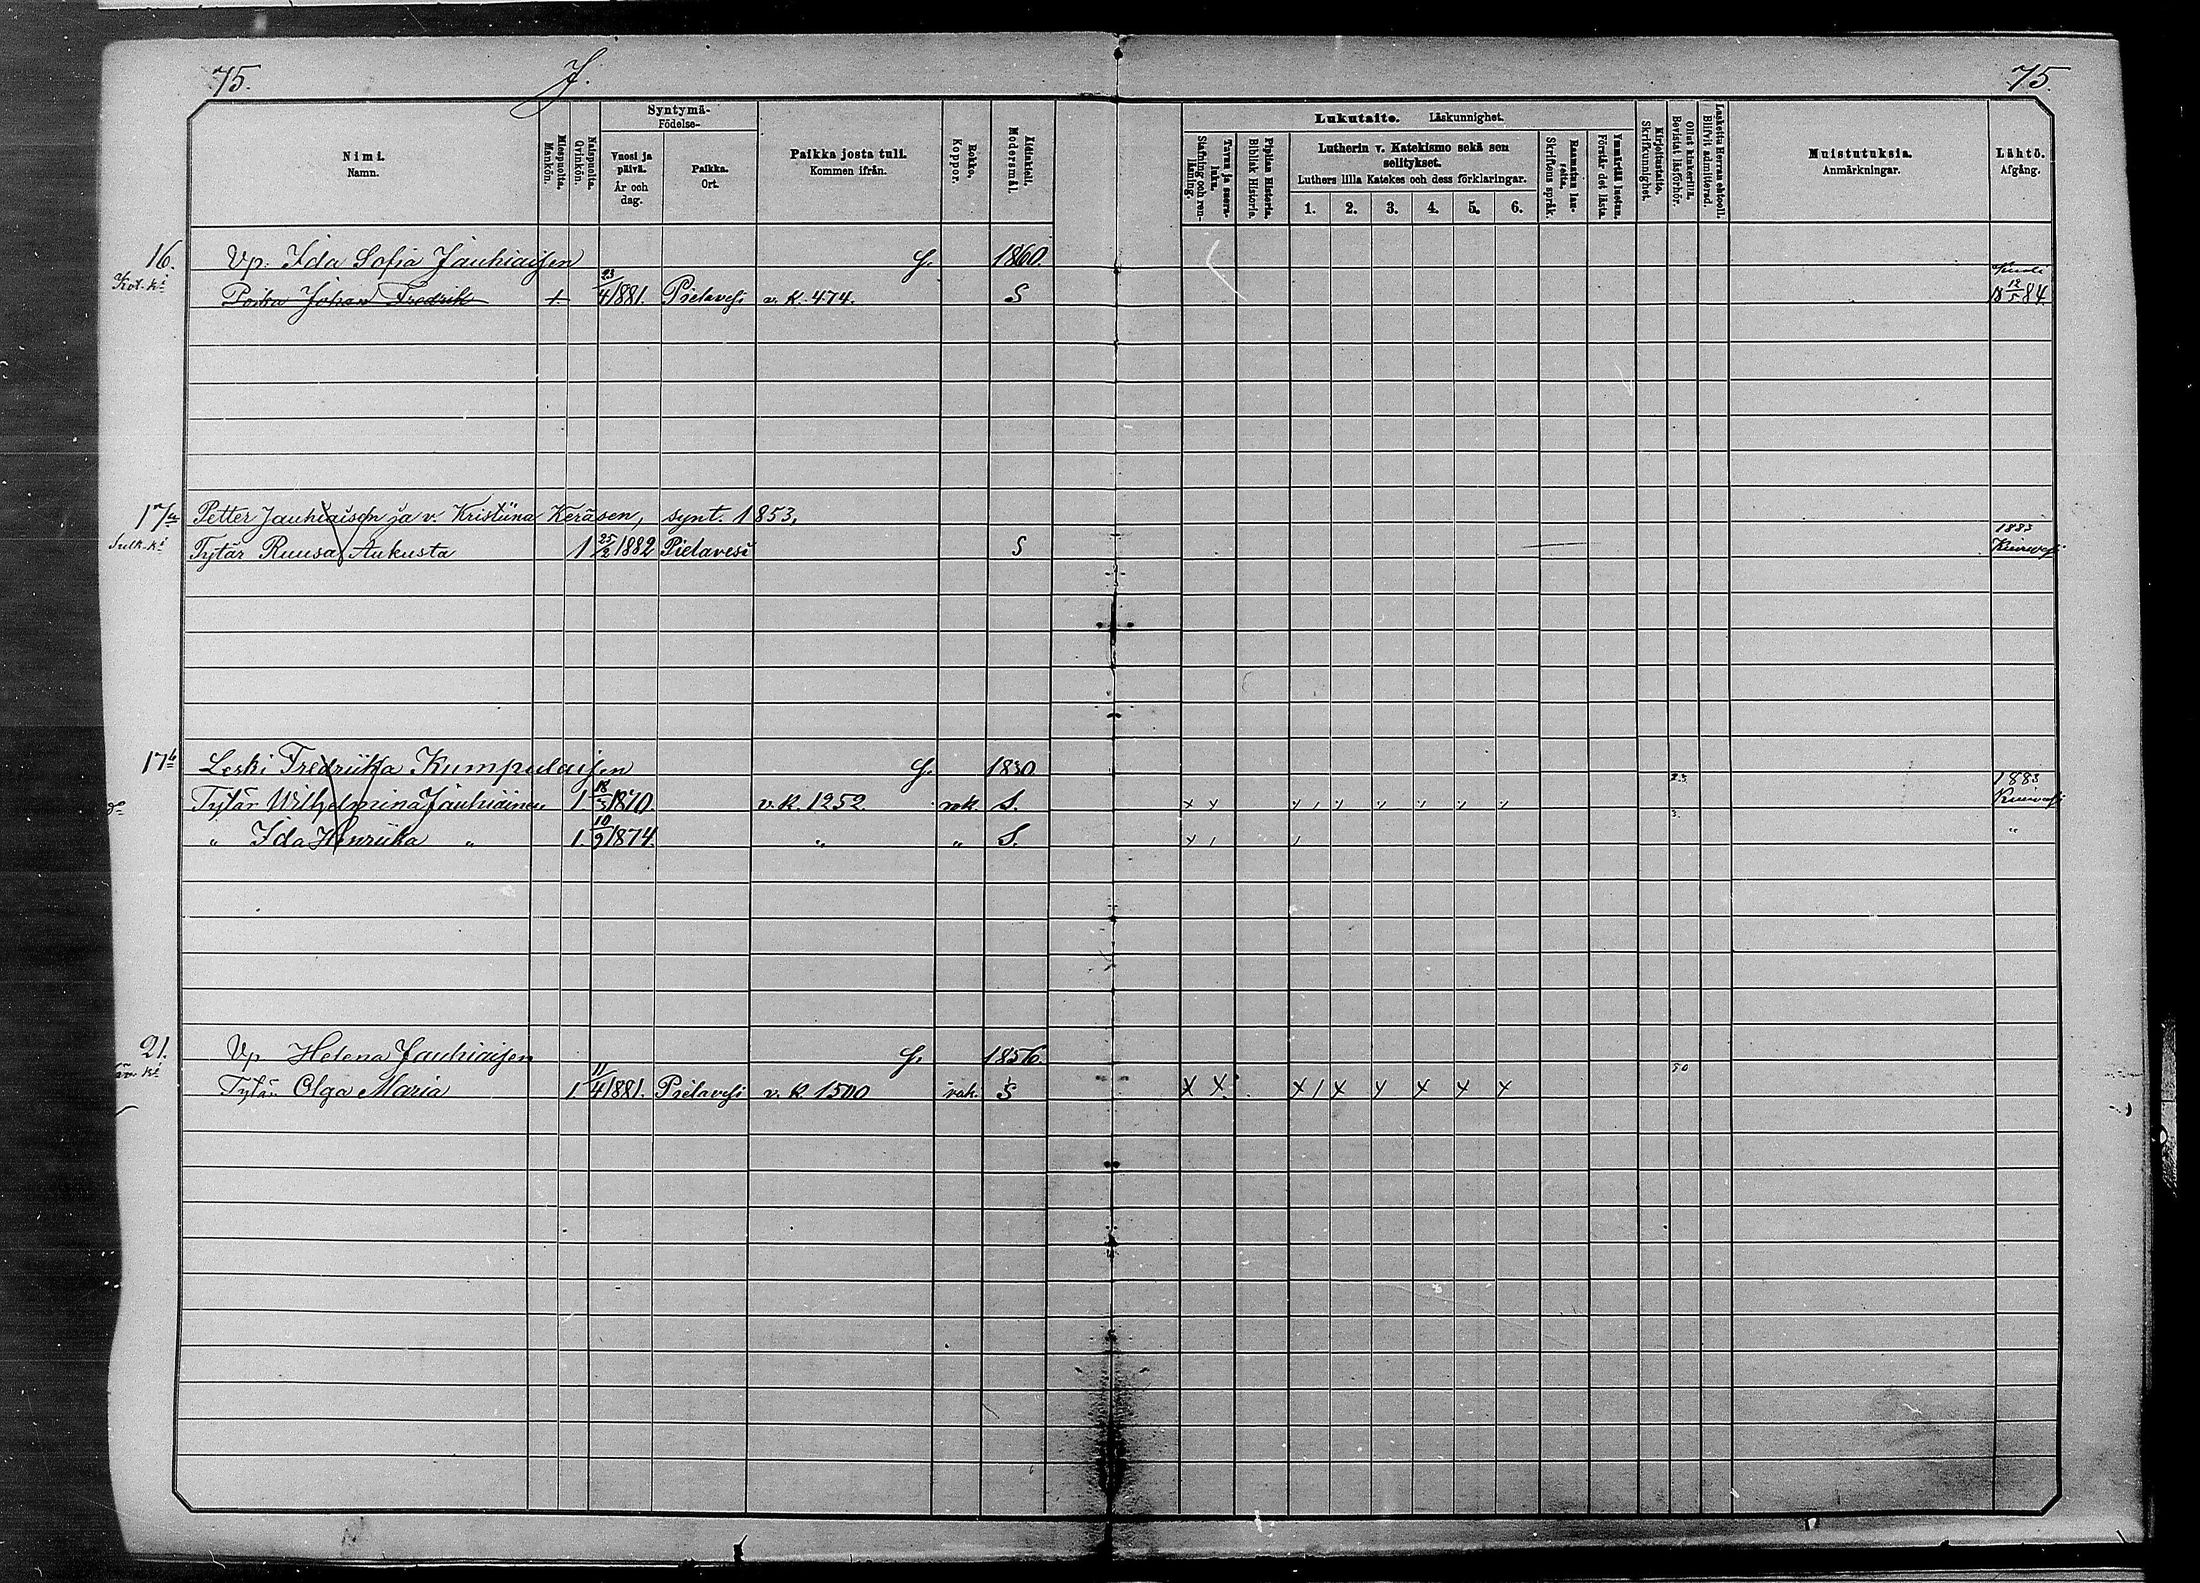 75. J. 75.
Nimi. Namn.
Miespuolta. Mankön.
Naispuolta. Qvinkön.
Syntymä- Födelse-
Vuosi ja päivä. År och dag.
Paikka. Ort.
Paikka josta tuli. Kommen ifrån.
Rokko. Koppor.
Äidinkieli. Modersmål.
Lukutaito. Läskunnighet.
Tavuu ja suora- luku. Stafning och ren- läsning.
Piplian Historia. Biblisk Historia.
Lutherin v. Katekismo sekä sen selitykset.
Luthers lilla Katekes och dess förklaringar.
1. 2. 3. 4. 5. 6.
Raamatun lau- seita. Skriftens språk.
Ymmärtää luetun. Förstår det lästa.
Kirjoitustaito. Skrifkunnighet.
Ollut kinkerillä. Bevistat läsförhör.
Laskettu Herran ehtooll. Blifvit admitterad.
Muistutuksia. Anmärkningar.
Lähtö. Afgång.
16. Vp. Ida Sofia Jauhiaisen S. 1860.
Kot. ki Poika Johan Fredrik 1 23/4 1881. Pielavesi v. K. 474. S Kuoli 18 12/5 84.
17a Petter Jauhiaisen ja v. Kristiina Keräsen, synt. 1853,
Sulk. ki Tytär Ruusa Aukusta 1 25/2 1882 Pielavesi S 1883
17b Leski Fredriika Kumpulaisen S. 1830
do Tytär Wilhelmina Jauhiainen 1 18/3 1870 v. K. 1252 rok S. x x 23 1883
" Ida Henriika " 1. 10/9 1874. " " S. x / / 3. "
21. Vp. Helena Jauhiaisen S. 1856.
Tytär Olga Maria 1 11/4 1881. Pielavesi v. K. 1500 rok. S x x x / x x x x x 50